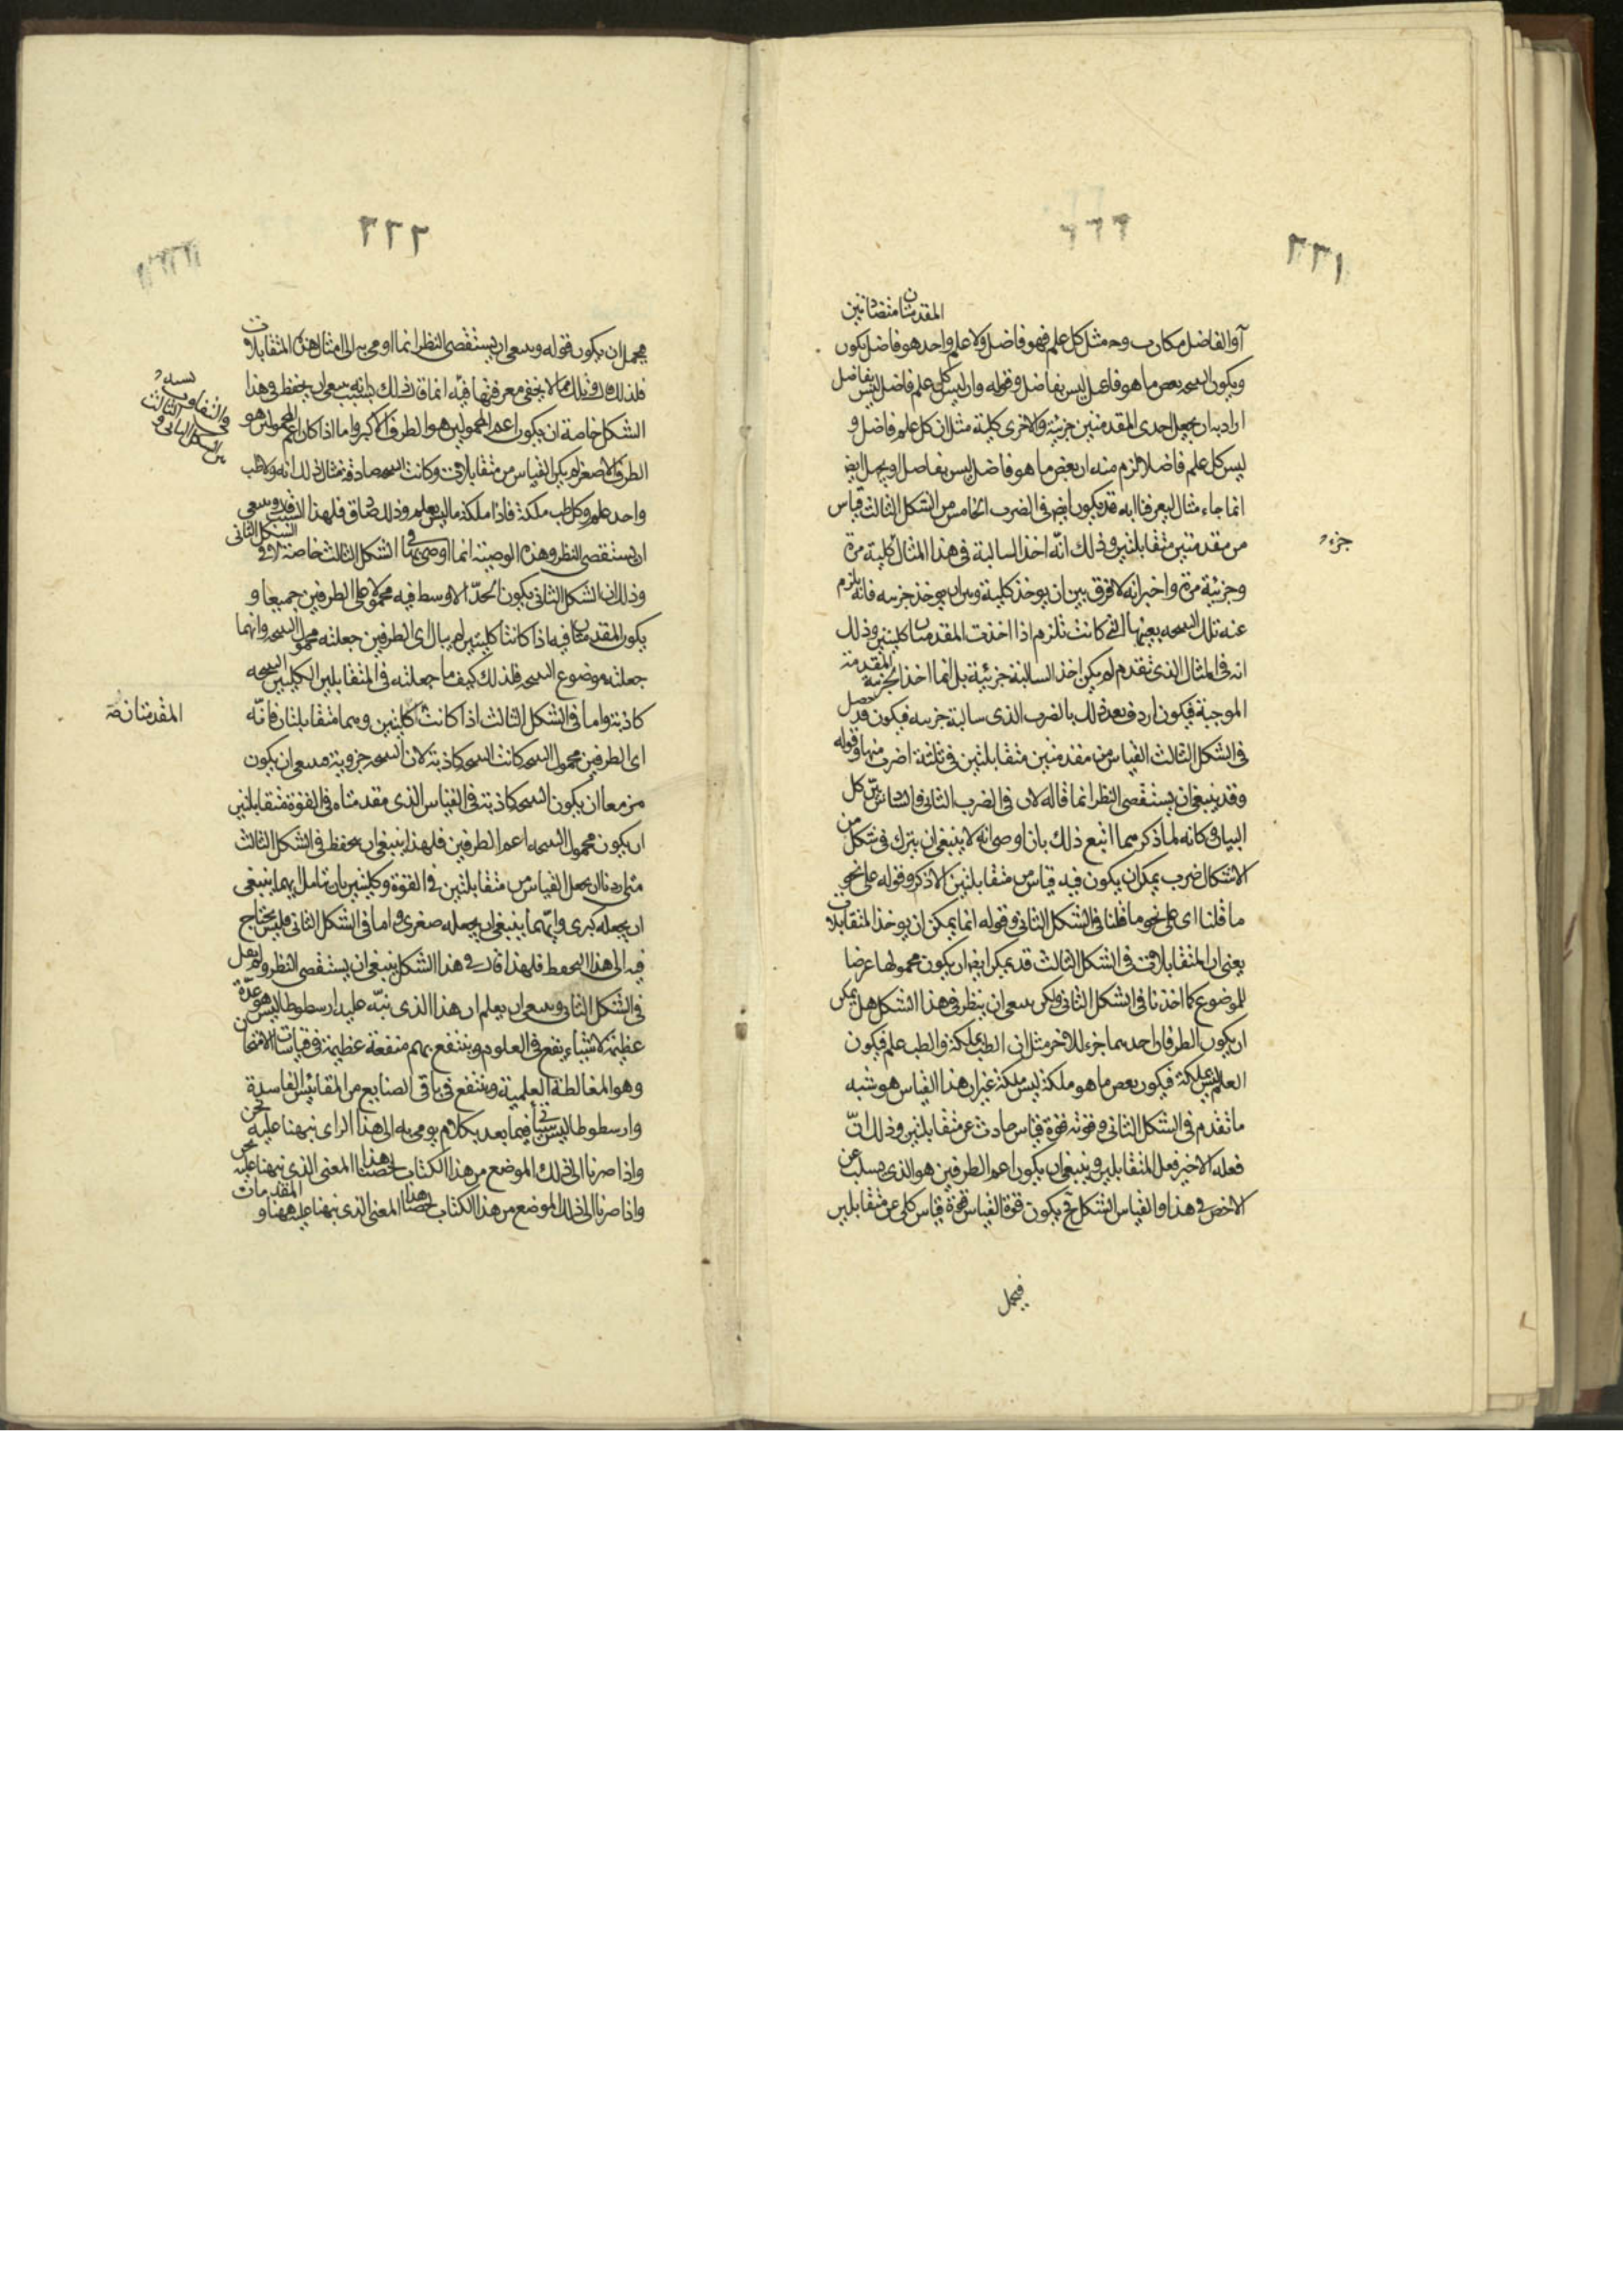 ٢٢١
المقدمتان متضادتين
آ والفاضل مكان ب وحـ مثل كل علم فهو فاضل ولا علم واحد هو فاضل يكون
ويكون النتيجة بعض ما هو فاضل ليس بفاضل وقوله وان ليس كل علم فاضل ليس بفاضل
اراد به ان يجعل احدى المقدمتين جزئية والاخرى كلية مثل ان كل علم فاضل و
ليس كل علم فاضلا لزم منه ان بعض ما هو فاضل ليس بفاضل
انما جاء مثال ليعرفنا انه قد يكون ايضا في الضرب الخامس من الشكل الثالث قياس
من مقدمتين متقابلتين وذلك انّه اخذ السالبة في هذا المثال كلية مرة
جزء
وجزئية مرة واخبر انه لا فرق بين ان يوخذ كلية وبين ان يوخذ جزئيه فانه يلزم
عنه تلك النتيجه بعينها التي كانت تلزم اذا اخذت المقدمتان كليتين وذلك
انه في المثال الذي تقدم لم يكن اخذ السالبة جزئية بل انما اخذ المقدمة الجزئية
الموجبة فيكون اردف بعد ذلك بالضرب الذي سالبة جزئيه فيكون قد حصل
في الشكل الثالث القياس من مقدمتين متقابلتين في ثلثة اضرب منها وقوله
وقد ينبغي ان يستقصى النظر انما قاله لان في الضرب الثاني والسادس بين كل
البيان وكانه لما ذكر اتبع ذلك بان اوصى انه لا ينبغي ان يترك في شكل من
الاشكال ضرب يمكن ان يكون فيه قياس من متقابلتين الا ذكر وقوله على نحو
ما قلنا اى على نحو ما قلنا في الشكل الثاني وقوله انما يمكن ان يوخذ المتقابلات
يعنى ان المتقابلات في الشكل الثالث قد يمكن ايضا ان يكون محمولها عرضا
للموضوع كما اخذنا في الشكل الثاني ولكن ينبغي ان ينظر في هذا الشكل هل يمكن
ان يكون الطرفان احدهما جزء للاخر مثل ان الطب ملكة والطب علم فيكون
العلم ليس بملكة فيكون بعض ما هو ملكة ليس ملكة غير ان هذا القياس هو شبه
ما تقدم في الشكل الثاني وقوته قوة قياس حادث عن متقابلتين وذلك انّ
فعله الاخير فعل المتقابلين وينبغي ان يكون اعم الطرفين هو الذي يسلب عن
الاخص في هذا القياس الشكل يكون قوة القياس قوة قياس كلي عن متقابلين
فيحمل
٢٢٢
يحمل ان يكون قوله وينبغي ان يستقصى النظر انما اومى به الى امثال هذه المتقابلات
فلذلك مما لا يخفى معرفتها فيه انما قال ذلك ينبغي ان يحفظ في هذا
الشكل خاصة ان يكون اعم المحمولين هو الطرف الاكبر واما اذا كان اعم المحمولين هو
الطرف الاصغر لم يكن القياس من متقابلات وكانت النتيجه صادقة مثال ذلك انه ولا طب
واحد علم وكل طب ملكة فاذا ملكة ما ليس بعلم وذلك صادق فلهذا السبب قد ينبغي
ان يستقصى النظر وهذه الوصية انما اوصى بها في الشكل الثالث خاصة لا في الشكل الثاني
وذلك ان الشكل الثاني يكون الحدّ الاوسط فيه محمولا على الطرفين جميعا و
يكون المقدمتان فيه اذا كانتا كليتين لم يبال اى الطرفين جعلته محمول النتيجه وايهما
جعلته موضوع النتيجه فلذلك كيف ما جعلته في المتقابلين الكليتين النتيجه
المقدمتان
كاذبة واما في الشكل الثالث اذا كانت كليتين وهما متقابلتان فانّه
اى الطرفين محمول النتيجه كانت النتيجه كاذبة لان النتيجه جزوية فينبغي ان يكون
مزمعا ان يكون النتيجه كاذبة في القياس الذي مقدمتاه في القوة متقابلتين
ان يكون محمول النتيجه اعم الطرفين فلهذا ينبغي ان يحفظ في الشكل الثالث
متى اردنا ان يجعل القياس من متقابلتين في القوة وكليتين بان نتامل ايهما ينبغي
ان يجعله كبرى وايّهما ينبغي ان يجعله صغرى واما في الشكل الثاني فليس يحتاج
فيه الى هذا التحفظ فلهذا قال في هذا الشكل ينبغي ان يستقصى النظر ولم يقل
في الشكل الثاني وينبغي ان يعلم ان هذا الذي نبّه عليه ارسطوطاليس هو عدّة
عظيمة لاشياء يقع في العلوم وينتفع بهم منفعة عظيمة في قياسات الامتحان
وهو المغالطة العلمية وينتفع في باقي الصنايع من المقائيس الفاسدة
وارسطوطاليس سياتي فيما بعد بكلام يومى به الى هذا الراى نبهنا عليه نحن
واذا صرنا الى ذلك الموضع من هذا الكتاب لخصنا هذا المعنى الذي نبهنا عليه
واذا صرنا الى ذلك الموضع من هذا الكتاب لخصنا هذا المعنى الذي نبهنا عليه ههنا و المقدمات